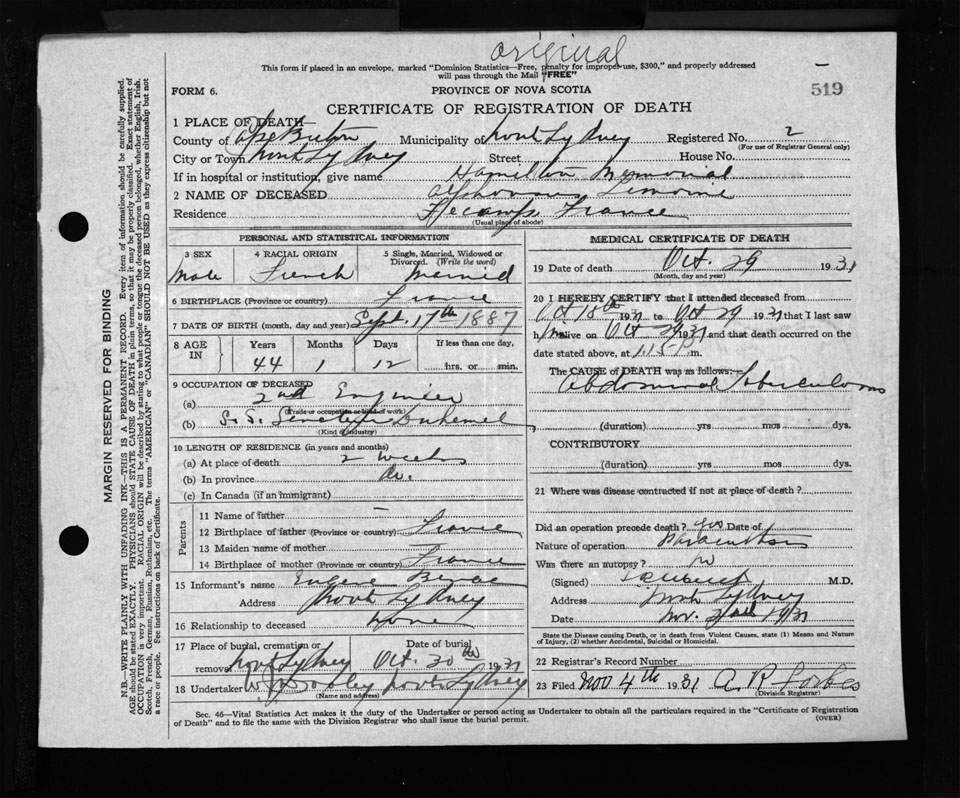 original
This form if placed in an envelope, marked "Dominion Statistics—Free, penalty for improper use, $300," and properly addressed
will pass through the Mail "FREE"
519
FORM 6.
PROVINCE OF NOVA SCOTIA
CERTIFICATE OF REGISTRATION OF DEATH
1 PLACE OF DEATH
County of Cape Breton Municipality of North Sydney Registered No. 2
(For use of Registrar General only)
City or Town North Sydney Street House No.
If in hospital or institution, give name Hamilton Memorial
2 NAME OF DECEASED Alphonse Lemoine
Residence Fecamp France
(Usual place of abode)
PERSONAL AND STATISTICAL INFORMATION
3 SEX 4 RACIAL ORIGIN 5 Single, Married, Widowed or
Divorced. (Write the word)
Male French Married
6 BIRTHPLACE (Province or country) France
7 DATE OF BIRTH (month, day and year) Sept. 17th 1887
8 AGE IN Years Months Days If less than one day,
44 1 12 hrs. or min.
9 OCCUPATION OF DECEASED
(a) 2nd Engineer
(Trade or occupation or kind of work)
(b) S.S. Senateur Duhamel
(Kind of industry)
10 LENGTH OF RESIDENCE (in years and months)
(a) At place of death 2 weeks
(b) In province do.
(c) In Canada (if an immigrant)
Parents
11 Name of father –
12 Birthplace of father (Province or country) France
13 Maiden name of mother
14 Birthplace of mother (Province or country) France
15 Informant's name Eugene
Address North Sydney
16 Relationship to deceased None
17 Place of burial, cremation or removal North Sydney Date of burial Oct. 30th 1931
18 Undertaker North Sydney
(Name and address)
MEDICAL CERTIFICATE OF DEATH
19 Date of death Oct. 29 1931
(Month, day and year)
20 I HEREBY CERTIFY that I attended deceased from
Oct 18th 1931 to Oct 29 1931 that I last saw
him alive on Oct 29 1931 and that death occurred on the
date stated above, at m.
The CAUSE of DEATH was as follows:—
Abdominal Tuberculosis
(duration) yrs mos. dys.
CONTRIBUTORY
(duration) yrs mos. dys.
21 Where was disease contracted if not at place of death?
Did an operation precede death? yes Date of
Nature of operation Paracentesis
Was there an autopsy? no
(Signed) M.D.
Address North Sydney
Date Nov. 2nd 1931
State the Disease causing Death, or in death from Violent Causes, state (1) Means and Nature
of Injury, (2) whether Accidental, Suicidal or Homicidal.
22 Registrar's Record Number
23 Filed Nov 4th 1931 A. R. Forbes
(Division Registrar)
Sec. 46—Vital Statistics Act makes it the duty of the Undertaker or person acting as Undertaker to obtain all the particulars required in the "Certificate of Registration
of Death" and to file the same with the Division Registrar who shall issue the burial permit.
(OVER)
MARGIN RESERVED FOR BINDING
N.B. WRITE PLAINLY WITH UNFADING INK—THIS IS A PERMANENT RECORD. Every item of information should be carefully supplied.
AGE should be stated EXACTLY. PHYSICIANS should STATE CAUSE OF DEATH in plain terms, so that it may be properly classified. Exact statement of
OCCUPATION is very important. RACIAL ORIGIN will be described by stating to what people or tongue the deceased person belonged, whether English, Irish,
Scotch, French, German, Russian, Ruthenian, etc. The terms "AMERICAN" or "CANADIAN" SHOULD NOT BE USED as they express citizenship but not
a race or people. See instructions on back of Certificate.